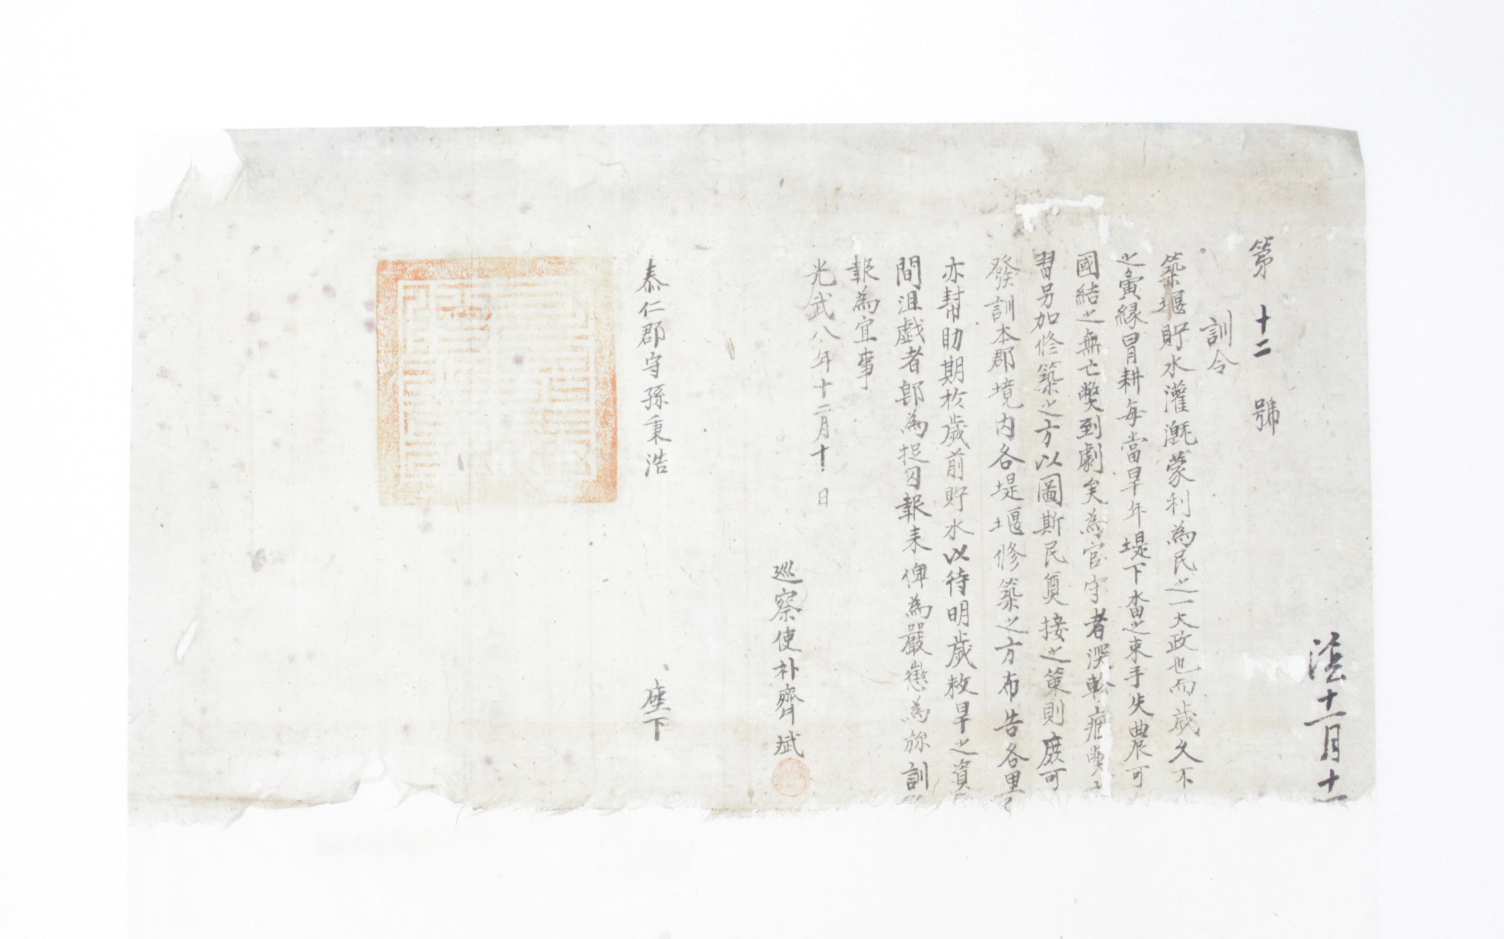 第十二號
訓令
築堰貯水灌漑蒙利爲民之一大政也而歲久不
之寅緣冒耕每當旱年堤下畓之束手失農可
國結之無亡弊到劇矣爲官守者深軫痼弊
習另加修築之方以圖斯民奠接之策則庶可
發訓本郡境內各堤堰修築之方布告各里
亦幇助期於歲前貯水以待明歲救旱之資
間沮戲者郞爲捉囚報来俾爲嚴懲爲旀訓
報爲宜事
光武八年十二月十日
巡察使朴齊斌
泰仁郡守孫秉浩 座下
十二月十